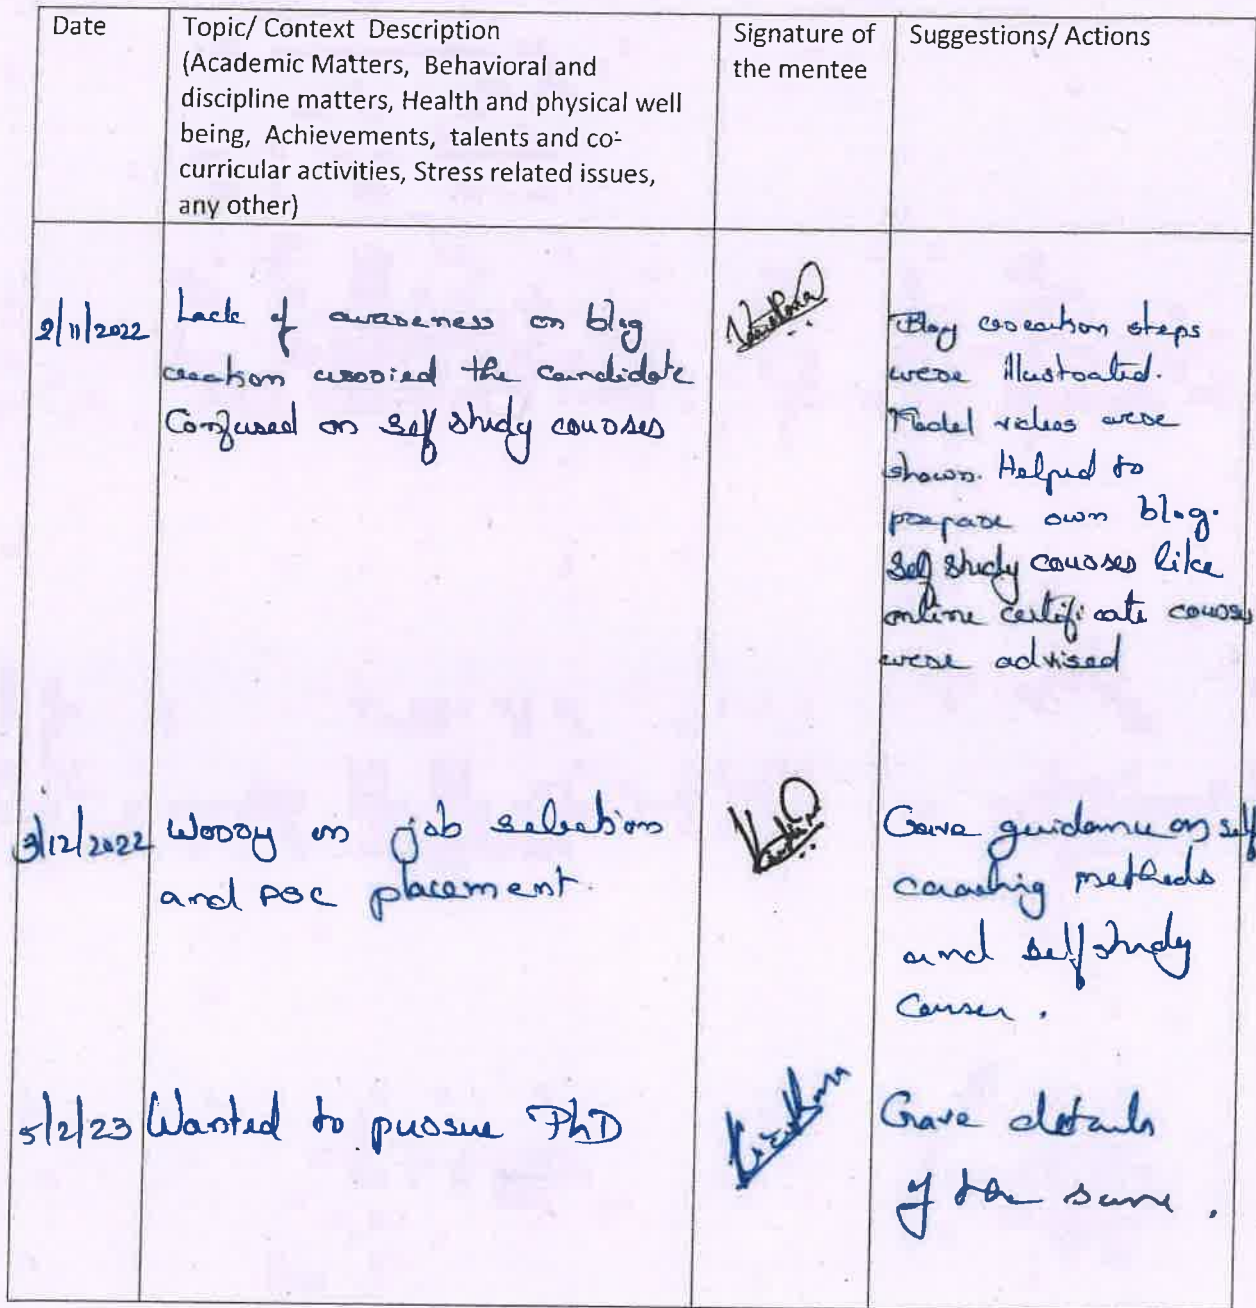 Date
Topic/ Context Description
(Academic Matters, Behavioral and
discipline matters, Health and physical well
being, Achievements, talents and co-
curricular activities, Stress related issues,
any other)
Signature of
the mentee
Suggestions/ Actions
2/11/2022
Lack of awareness on blog
creation worried the candidate
Confused on self study courses
Blog creation steps
were illustrated.
Model videos were
shown. Helped to
prepare own blog.
Self study courses like
online certificate courses
were advised
3/12/2022
Worry on job selection
and PSC placement.
Gave guidance on self
coaching methods
and self study
Courses.
5/2/23
Wanted to pursue PhD
Gave details
of the same.